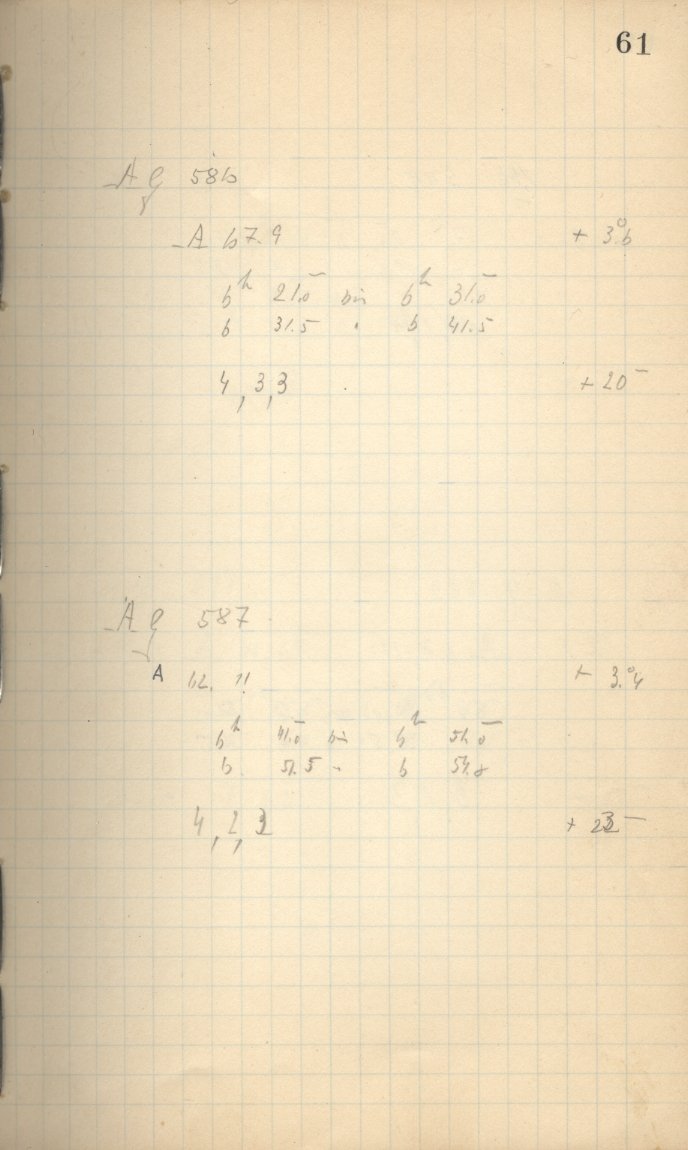 61
Ag 586
A 67.9 + 3.°6
6h 21.0 bis 6h 31.0
6 31.5 " 6 41.5
4, 3, 3 + 20
Ag 587
A 62. 11 + 3.°4
6h 41.0 bis 6h 51.0
6 51.5 - 6 54.8
4, 2,